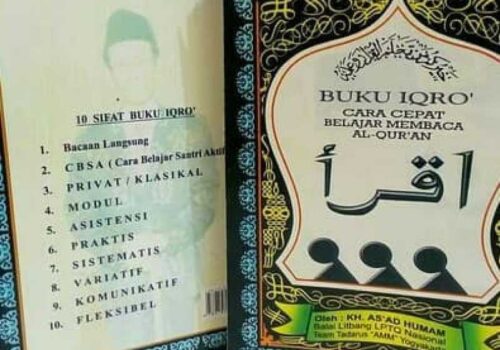 10 SIFAT BUKU IQRO'
1. Bacaan Langsung
2. CBSA ( Cara Belajar Santri Aktif
3. PRIVAT / KLASIKAL
4. MODUL
5. ASISTENSI
6. PRAKTIS
7. SISTEMATIS
8. VARIATIF
9. KOMUNIKATIF
10. FLEKSIBEL
خيركم من تعلم القرآن وعلمه
BUKU IQRO'
CARA CEPAT
BELAJAR MEMBACA
AL-QUR'AN
اقرأ
Oleh : KH. AS'AD HUMAM
Balai Litbang LPTQ Nasional
Team Tadarus "AMM" Yogyakarta